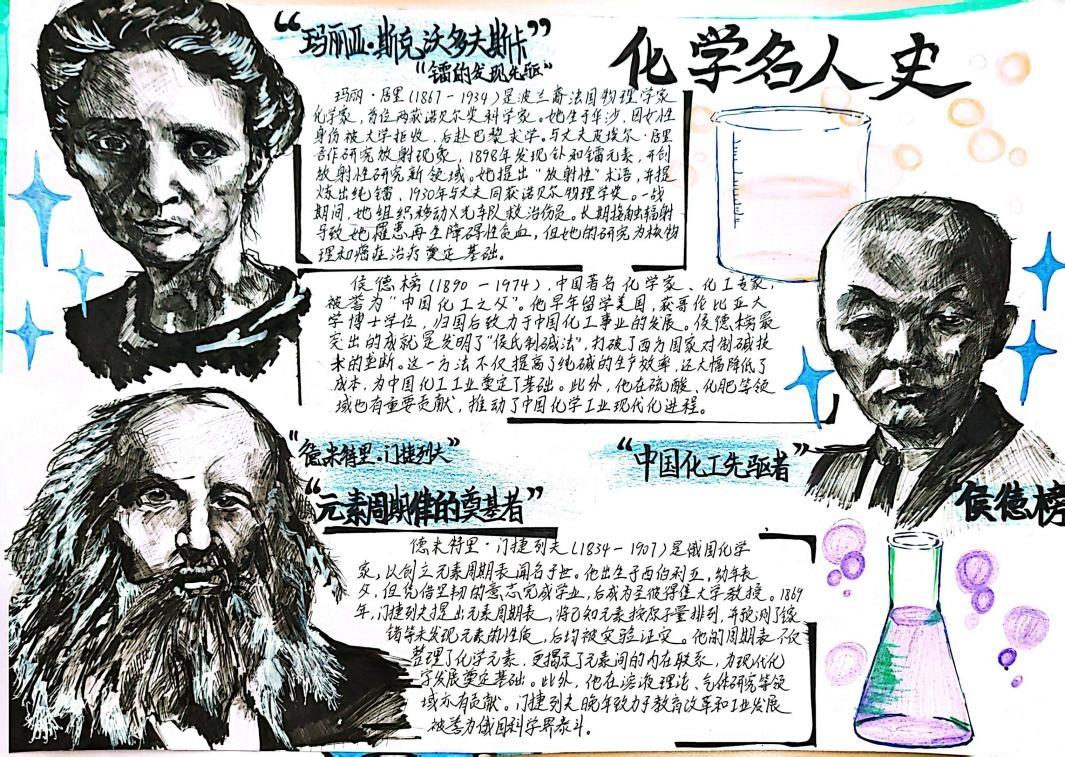 化学名人史
“玛丽亚·斯克沃多夫斯卡”
“镭的发现先驱”
玛丽·居里(1867-1934)是波兰裔法国物理学家
化学家，首位两获诺贝尔奖科学家。她生于华沙，因女性
身份被大学拒收，后赴巴黎求学。与丈夫皮埃尔·居里
合作研究放射现象，1898年发现钋和镭元素，开创
放射性研究新领域。她提出“放射性”术语，并提
炼出纯镭，1930年与丈夫同获诺贝尔物理学奖。一战
期间，她组织移动X光车队救治伤员。长期接触辐射
导致她罹患再生障碍性贫血，但她的研究为核物
理和癌症治疗奠定基础。
侯德榜(1890-1974)，中国著名化学家、化工专家，
被誉为“中国化工之父”。他早年留学美国，获哥伦比亚大
学博士学位，归国后致力于中国化工事业的发展。侯德榜最
突出的成就是发明了“侯氏制碱法”，打破了西方国家对制碱技
术的垄断。这一方法不仅提高了纯碱的生产效率，还大幅降低了
成本，为中国化工工业奠定了基础。此外，他在硫酸、化肥等领
域也有重要贡献，推动了中国化学工业现代化进程。
“中国化工先驱者”
侯德榜
“德米特里·门捷列夫”
“元素周期律的奠基者”
德米特里·门捷列夫(1834-1907)是俄国化学
家，以创立元素周期表闻名于世。他出生于西伯利亚，幼年丧
父，但凭借坚韧的意志完成学业，后成为圣彼得堡大学教授。1869
年，门捷列夫提出元素周期表，将已知元素按原子量排列，并预测了镓
锗等未发现元素的性质，后均被实验证实。他的周期表不仅
整理了化学元素，更揭示了元素间的内在联系，为现代化
学发展奠定基础。此外，他在溶液理论、气体研究等领
域亦有贡献。门捷列夫晚年致力于教育改革和工业发展
被誉为俄国科学界泰斗。